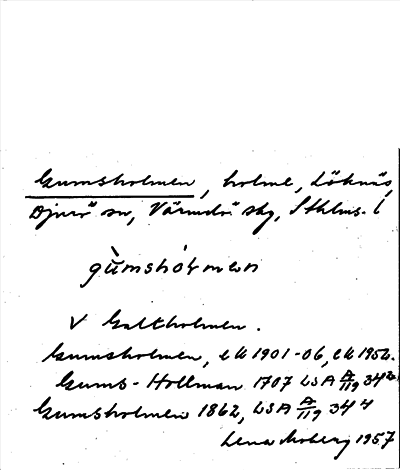 Gumsholmen, holme, Löknäs,
Djurö sn, Värmdö skg, Sthlms. l
gùmshólmen
V Galtholmen.
Gumsholmen, ek 1901-06, ek 1952.
Gums-Hollman 1707 LSA A/119 34²
Gumsholmen 1862, LSA A/119 34⁴
Lena Moberg 1957